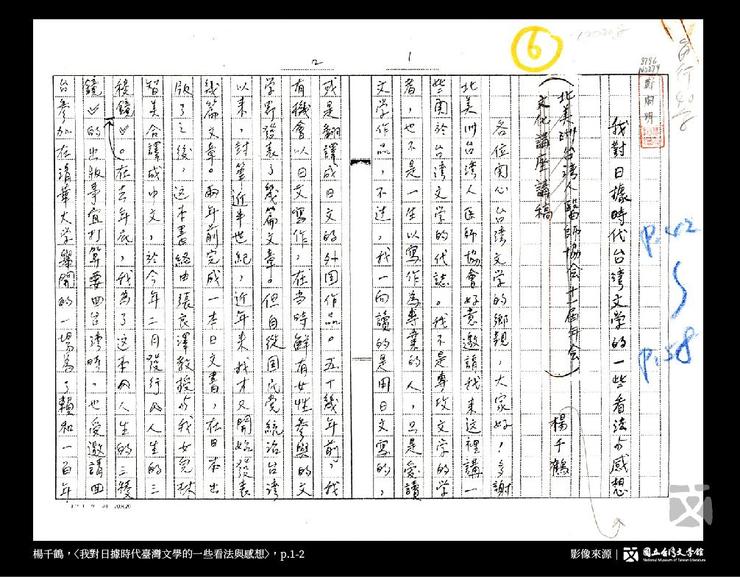 我對日據時代台灣文學的一些看法与感想
(北美洲台湾人醫師協会十一屆年会)
文化講座講稿
楊千鶴
各位関心台湾文学的鄉親，大家好！多謝
北美州台湾人医師協會好意邀請我来这裡講一
些関於台湾文学的代誌。我不是專攻文学的学
者，也不是一生以寫作為專業的人，只是爱讀
文学作品，不过，我一向讀的是用日文寫的，
1
2
或是翻譯成日文的外国作品。五十幾年前，我
有機會以日文寫作，在当時鮮有女性参與的文
学界發表了幾篇文章。但自從国民党統治台湾
以来，封筆近半世紀，近年来我才又開始發表
幾篇文章。兩年前完成一本日文書，在日本出
版了之後，这本書経由張良澤教授与我女兒林
智美合譯成中文，於今年二月發行《人生的三
稜鏡》。在去年底，我為了这本《人生的三稜
鏡》的出版事宜打算要回台灣時，也受邀請回
台参加在清華大学舉開的一場為了賴和一百年
6
p.42
p.58
楊千鶴，〈我對日據時代臺灣文學的一些看法與感想〉，p.1-2
影像來源｜國立台灣文學館
National Museum of Taiwan Literature